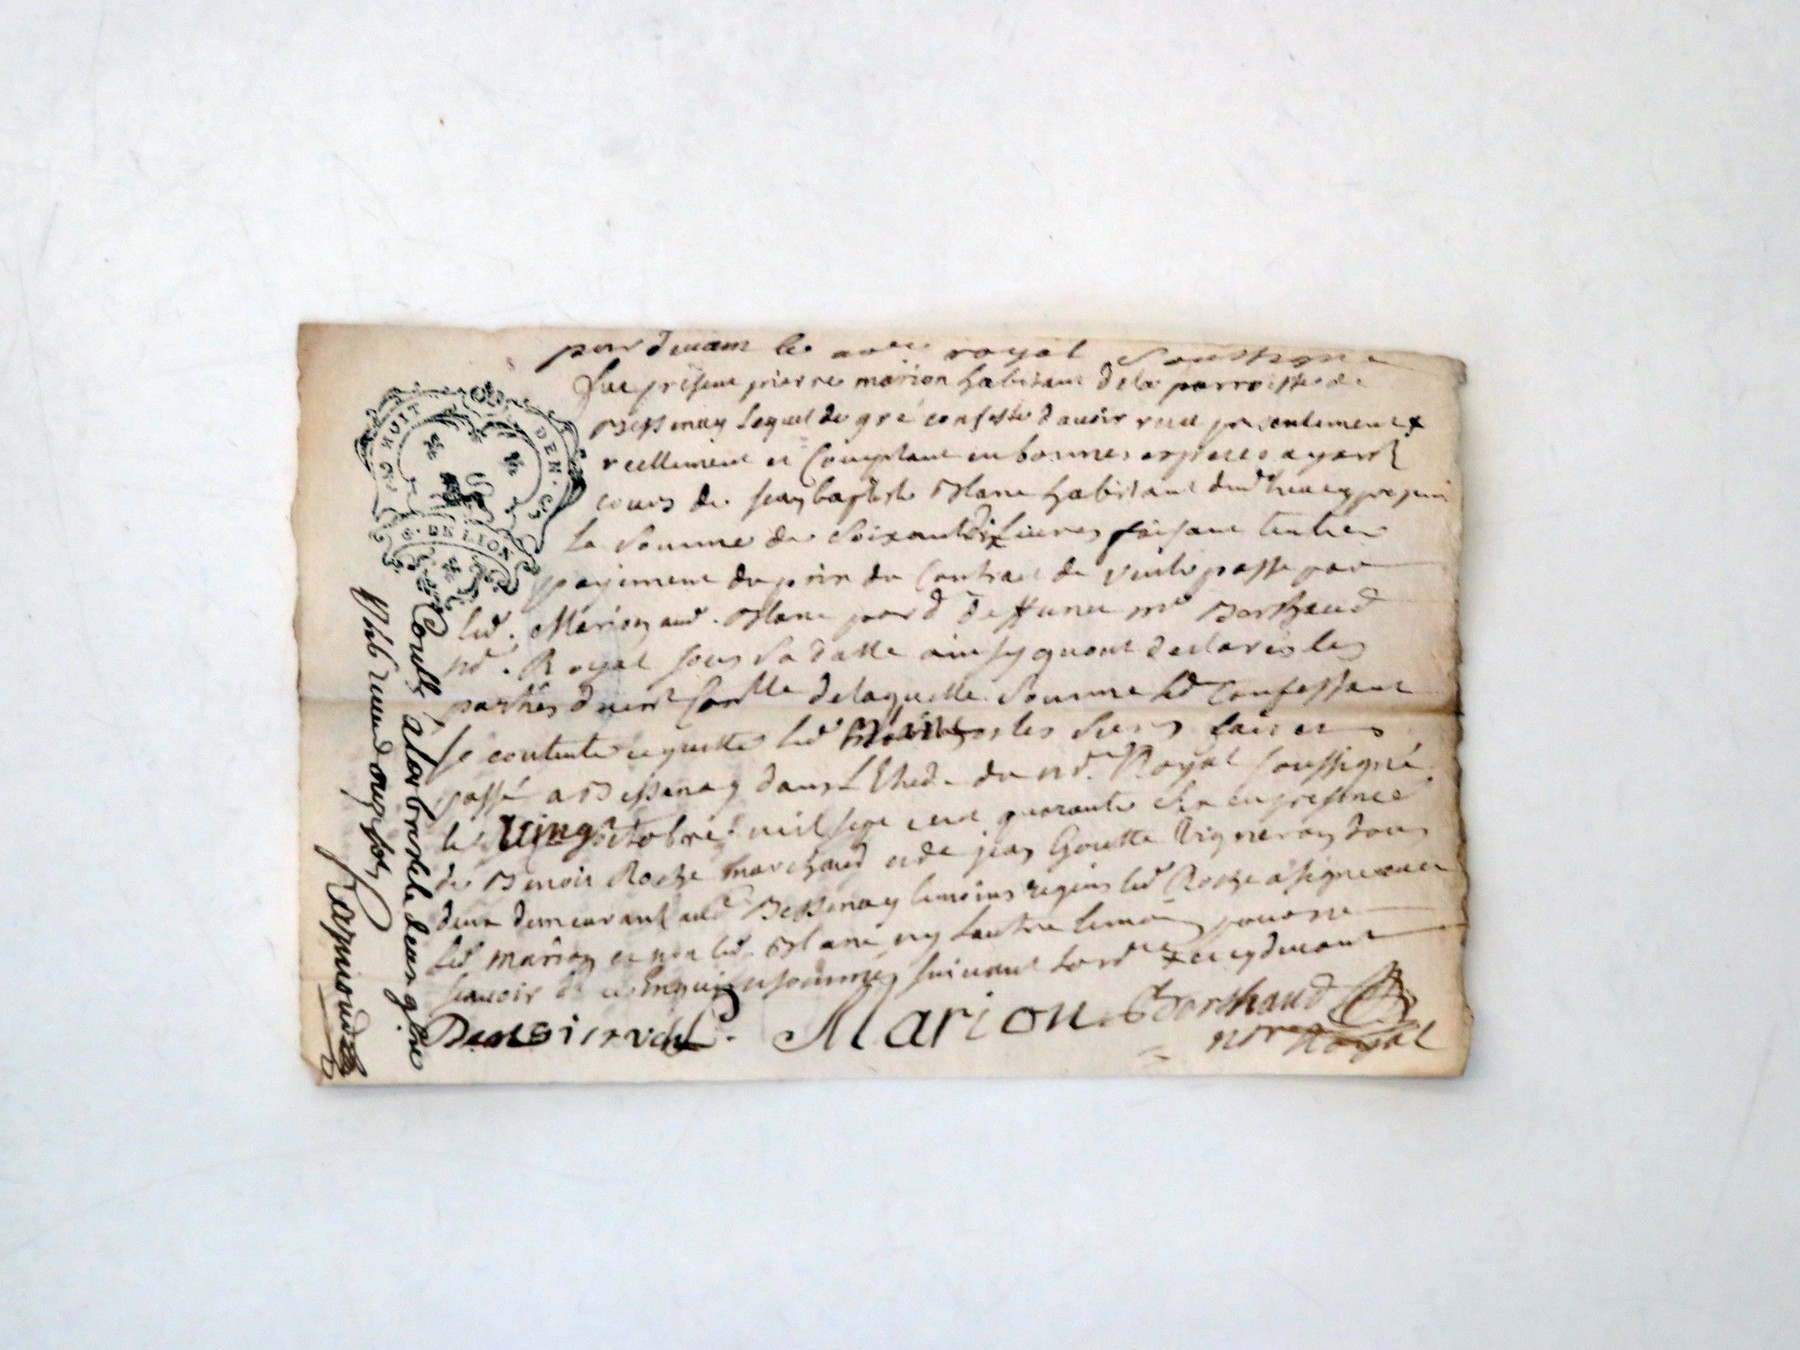 par devant le no.re royal Soussigné
fut present pierre marion habitant de la parroisse de
Bessenay lequel de gré confesse d'avoir receu presentement
reellement et Comptant en bonnes especes ayant
cours de jean baptiste Blanc habitant dud.
la Somme de Soixante dix Livres faisant l'entier
payement du prix du Contrat de vente passé par
led. Marion aud. Blanc pard. deffunt m.e Berthaud
n.re Royal sous sa datte ainsy quont declaré les
parties de laquelle Somme led. Confessant
se contente et quitte led. les siens fait et
passé a Bessenay dans L'Etude du n.re Royal soussigné
le vingt octobre mil sept cent quarante six en presence
de Benoit Roche marchand et de jean Goutte Vigneron tous
deux demeurant aud. Bessenay temoins requis led. Roche a signé avec
led. marion et non led. Blanc ny l'autre temoin pour ne
scavoir de ce enquis et sommés suivant l'ord.ce
Marion Berthaud
n.re Royal
Conllé a Larbresle
GN. DE LION